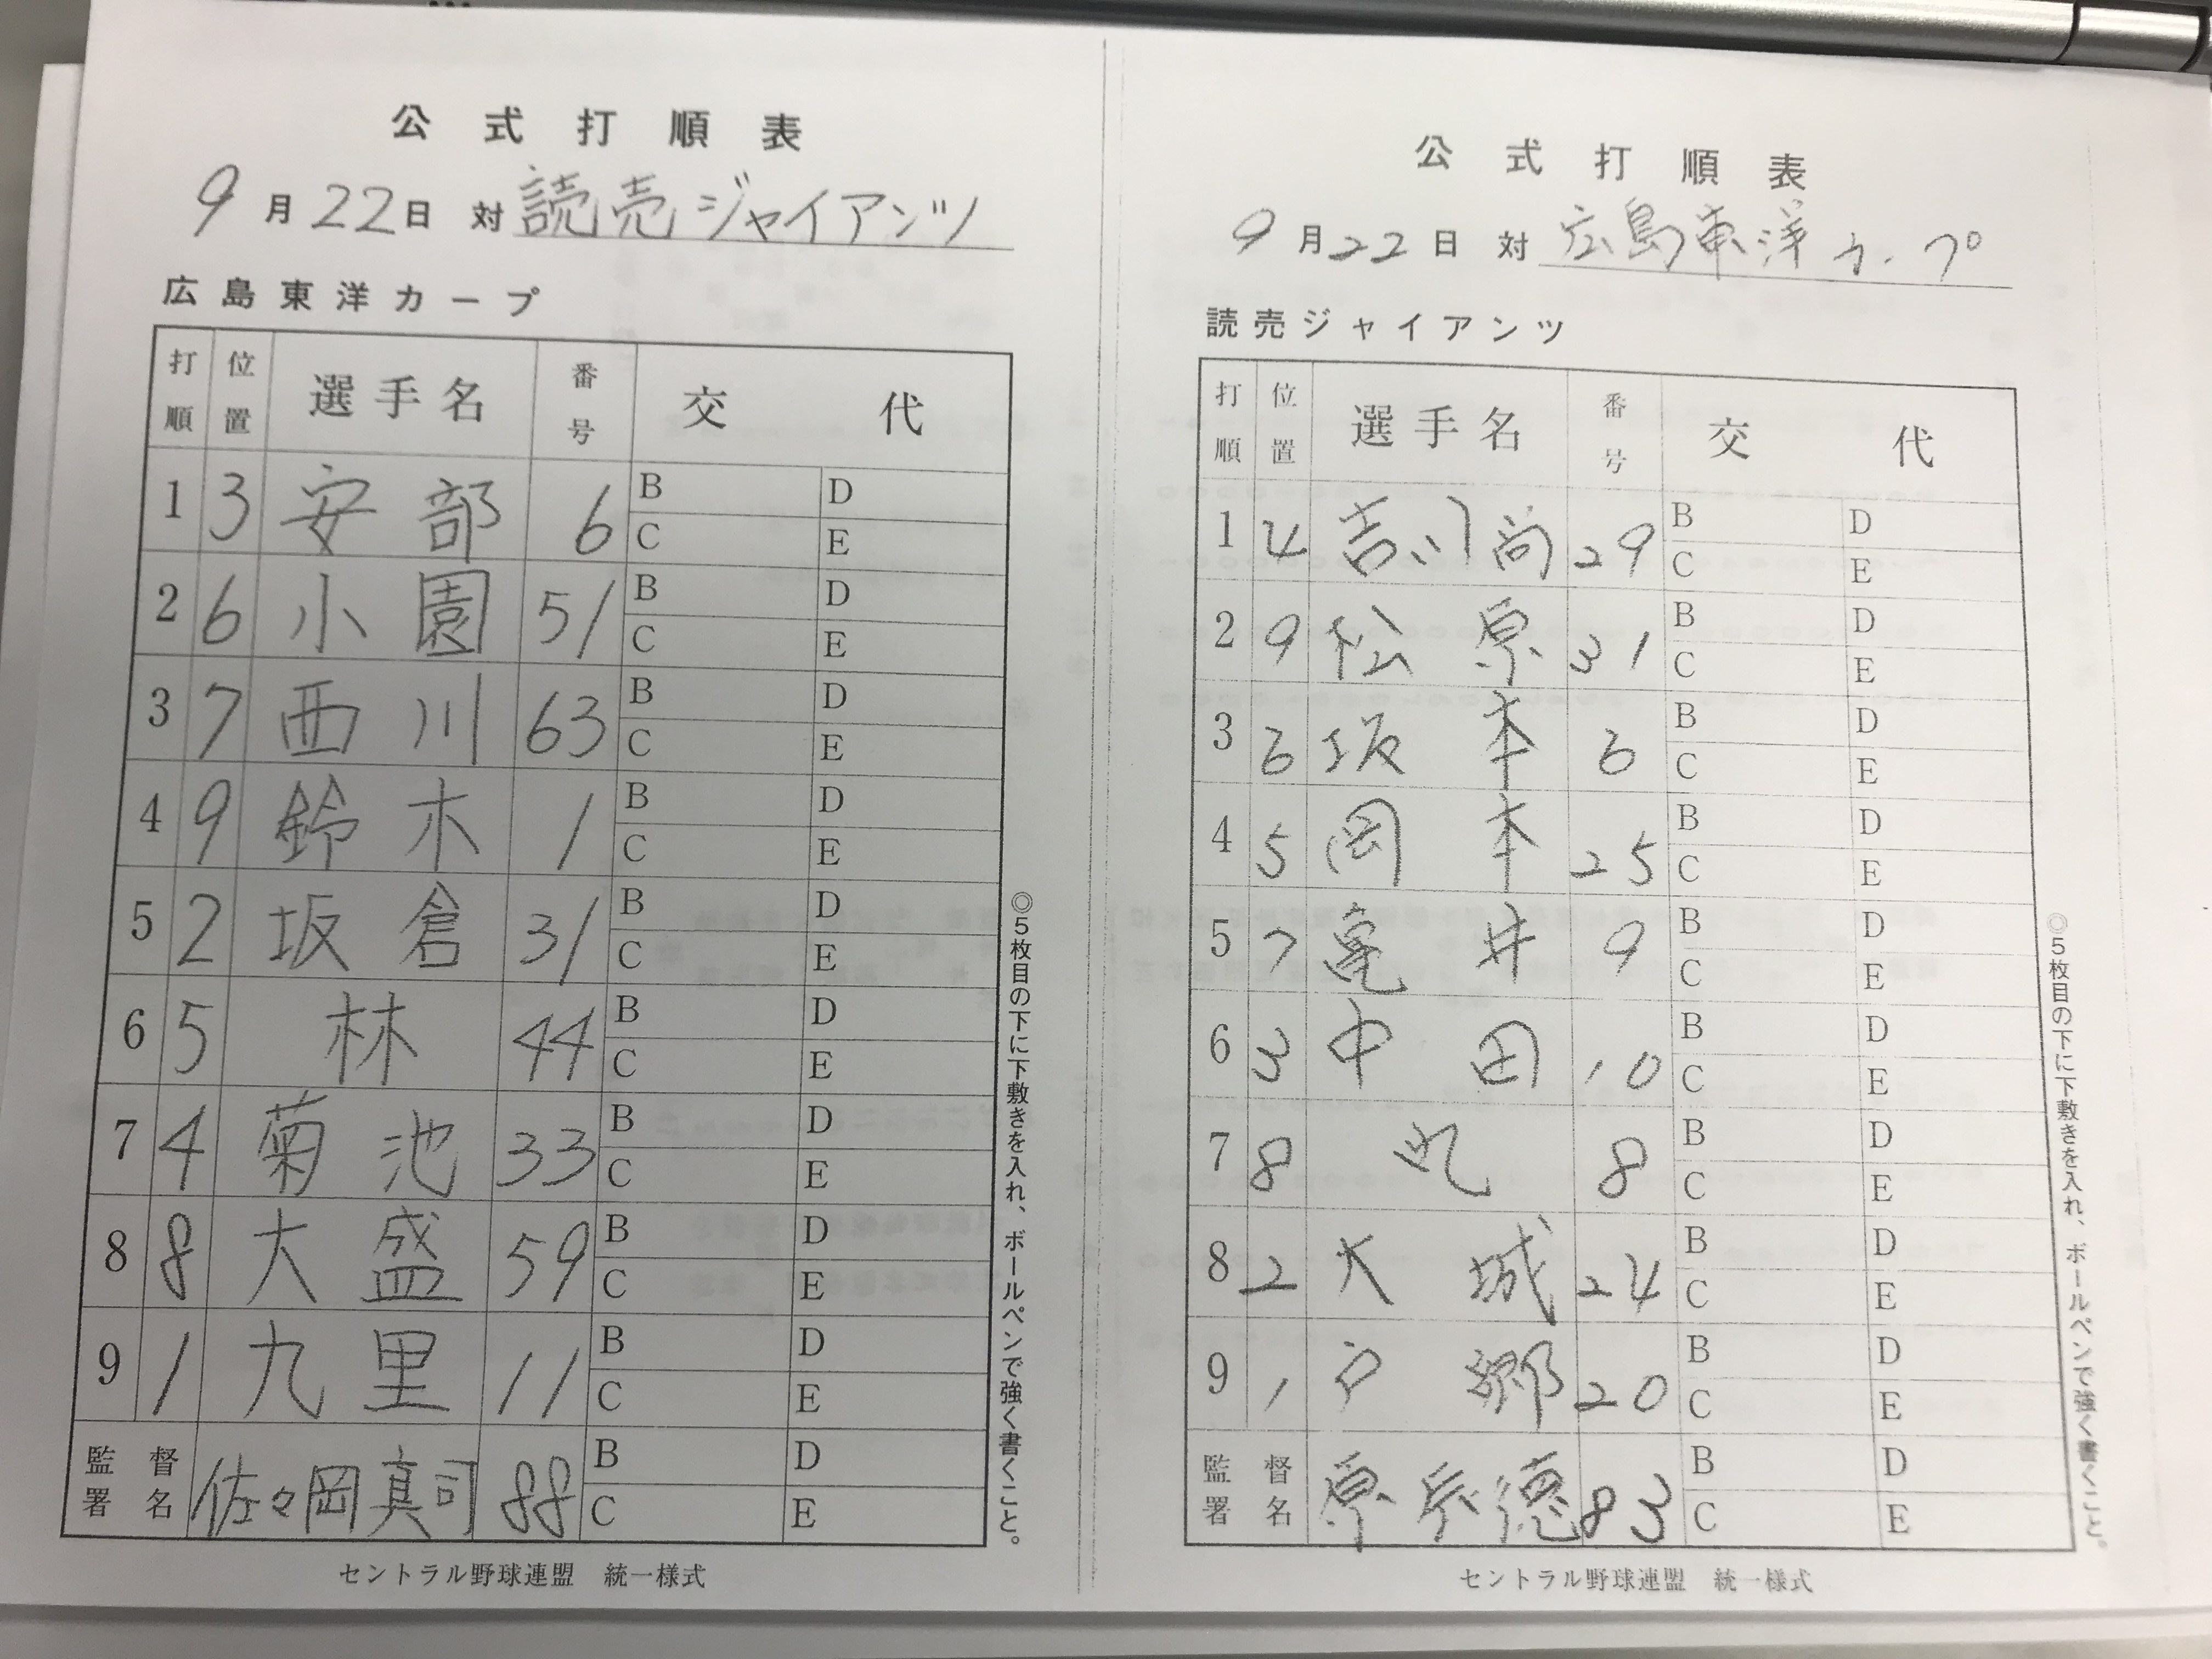 公式打順表
9月22日 対 読売ジャイアンツ
広島東洋カープ
打順 位置 選手名 番号 交代
1 3 安部 6 B D
C E
2 6 小園 51 B D
C E
3 7 西川 63 B D
C E
4 9 鈴木 1 B D
C E
5 2 坂倉 31 B D
C E
6 5 林 44 B D
C E
7 4 菊池 33 B D
C E
8 8 大盛 59 B D
C E
9 1 九里 11 B D
C E
監督署名 佐々岡真司 88 B D
C E
◎5枚目の下に下敷きを入れ、ボールペンで強く書くこと。
セントラル野球連盟 統一様式
公式打順表
9月22日 対 広島東洋カープ
読売ジャイアンツ
打順 位置 選手名 番号 交代
1 4 吉川尚 29 B D
C E
2 9 松原 31 B D
C E
3 6 坂本 6 B D
C E
4 5 岡本 25 B D
C E
5 7 亀井 9 B D
C E
6 3 中田 10 B D
C E
7 8 丸 8 B D
C E
8 2 大城 24 B D
C E
9 1 戸郷 20 B D
C E
監督署名 原辰徳 83 B D
C E
◎5枚目の下に下敷きを入れ、ボールペンで強く書くこと。
セントラル野球連盟 統一様式